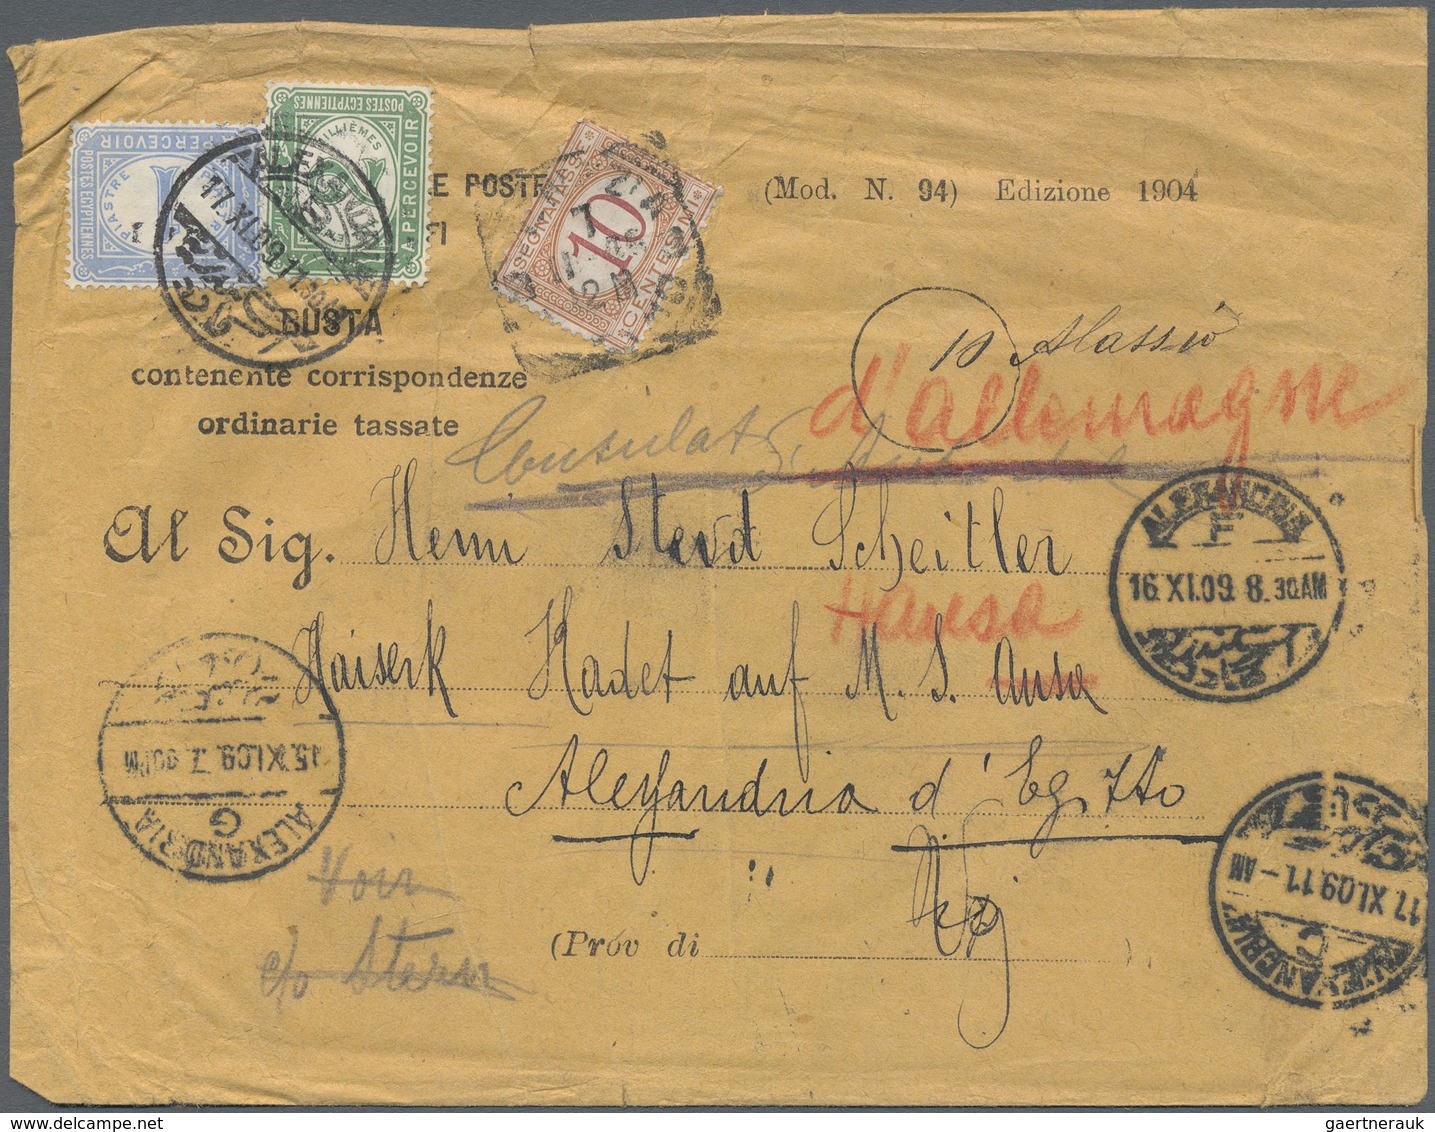 POSTES EGYPTIENNES
MILLIÈMES
2
A PERCEVOIR
A PERCEVOIR
1
PIASTRE
POSTES EGYPTIENNES
ALEXANDRIA
17 XI.09.11.30AM
SEGNATASSE
10
CENTESIMI
E POSTE
(Mod. N. 94) Edizione 1904
BUSTA
contenente corrispondenze
ordinarie tassate
10 Alassio
Consulat
d'allemagne
Al Sig. Henri Stevd Scheitler
Hansa
Kaiserk Kadet auf M. S. Ansa
Alexandria d'Egitto
ALEXANDRIA
F
16.XI.09. 8.30.AM
15.XI.09. 7.30PM
G
ALEXANDRIA
17.XI.09.11.- AM
C
ALEXANDRIA
Vorr
c/o Stern
(Próv di )
gaertnerauk